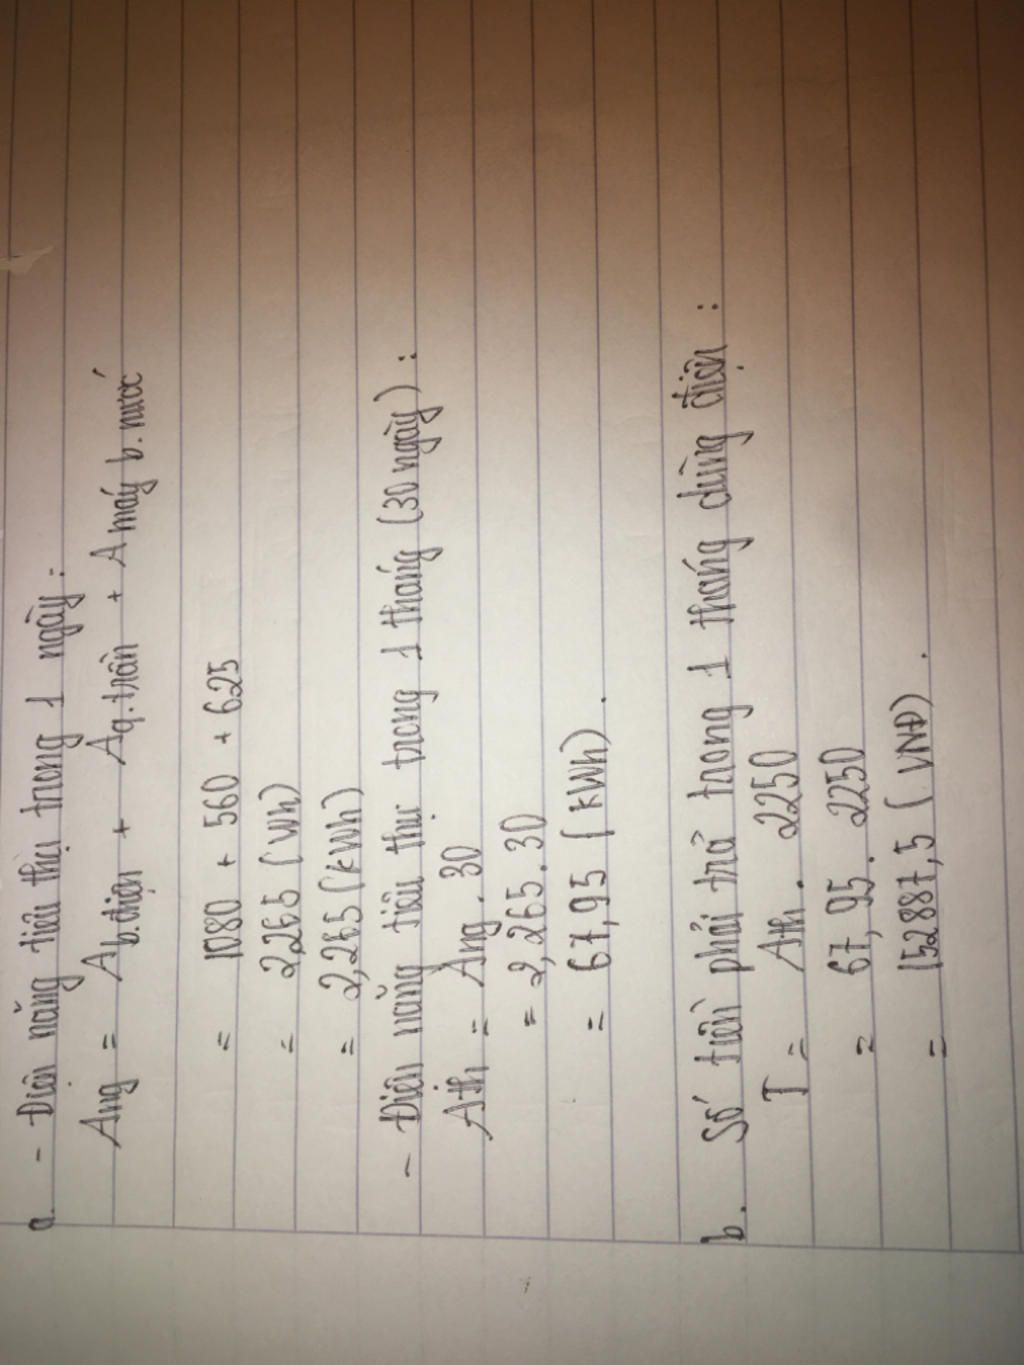 a. - Điện năng tiêu thụ trong 1 ngày :
Ang = Ab.điện + Aq.trần + A máy b.nước
= 1080 + 560 + 625
= 2265 (Wh)
= 2,265 (kWh)
- Điện năng tiêu thụ trong 1 tháng (30 ngày) :
Ath = Ang . 30
= 2,265 . 30
= 67,95 (kWh) .
b. Số tiền phải trả trong 1 tháng dùng điện :
T = Ath . 2250
= 67,95 . 2250
= 152887,5 (VNĐ) .